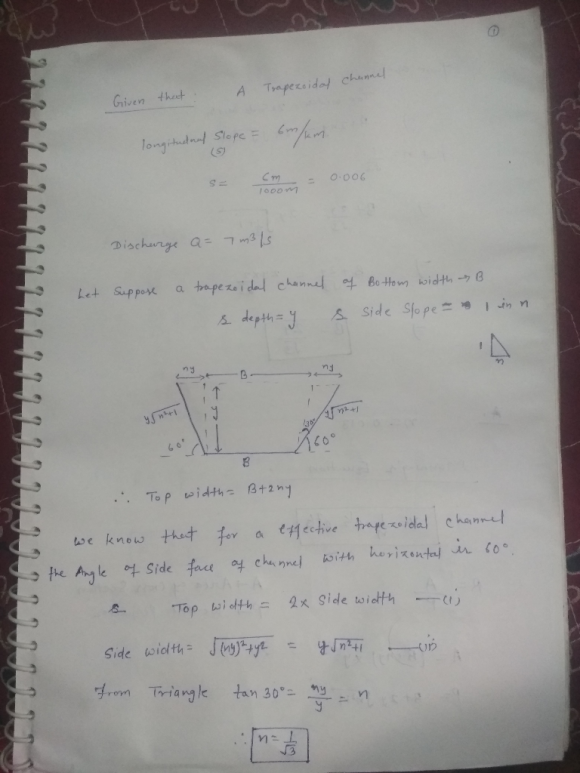 1
Given that: A Trapezoidal channel
longitudnal slope = 6m/km
(S)
S = 6m/1000m = 0.006
Discharge Q = 7 m³/s
Let Suppose a trapezoidal channel of Bottom width → B
& depth = y & Side Slope = 1 in n
1
n
ny B ny
y√n²+1 y y√n²+1
60° 30° 60°
B
∴ Top width = B+2ny
We know that for a effective trapezoidal channel
the Angle of Side face of channel with horizontal is 60°.
& Top width = 2x Side width —(i)
Side width = √(ny)²+y² = y√n²+1 —(ii)
From Triangle tan 30° = ny/y = n
∴ n = 1/√3